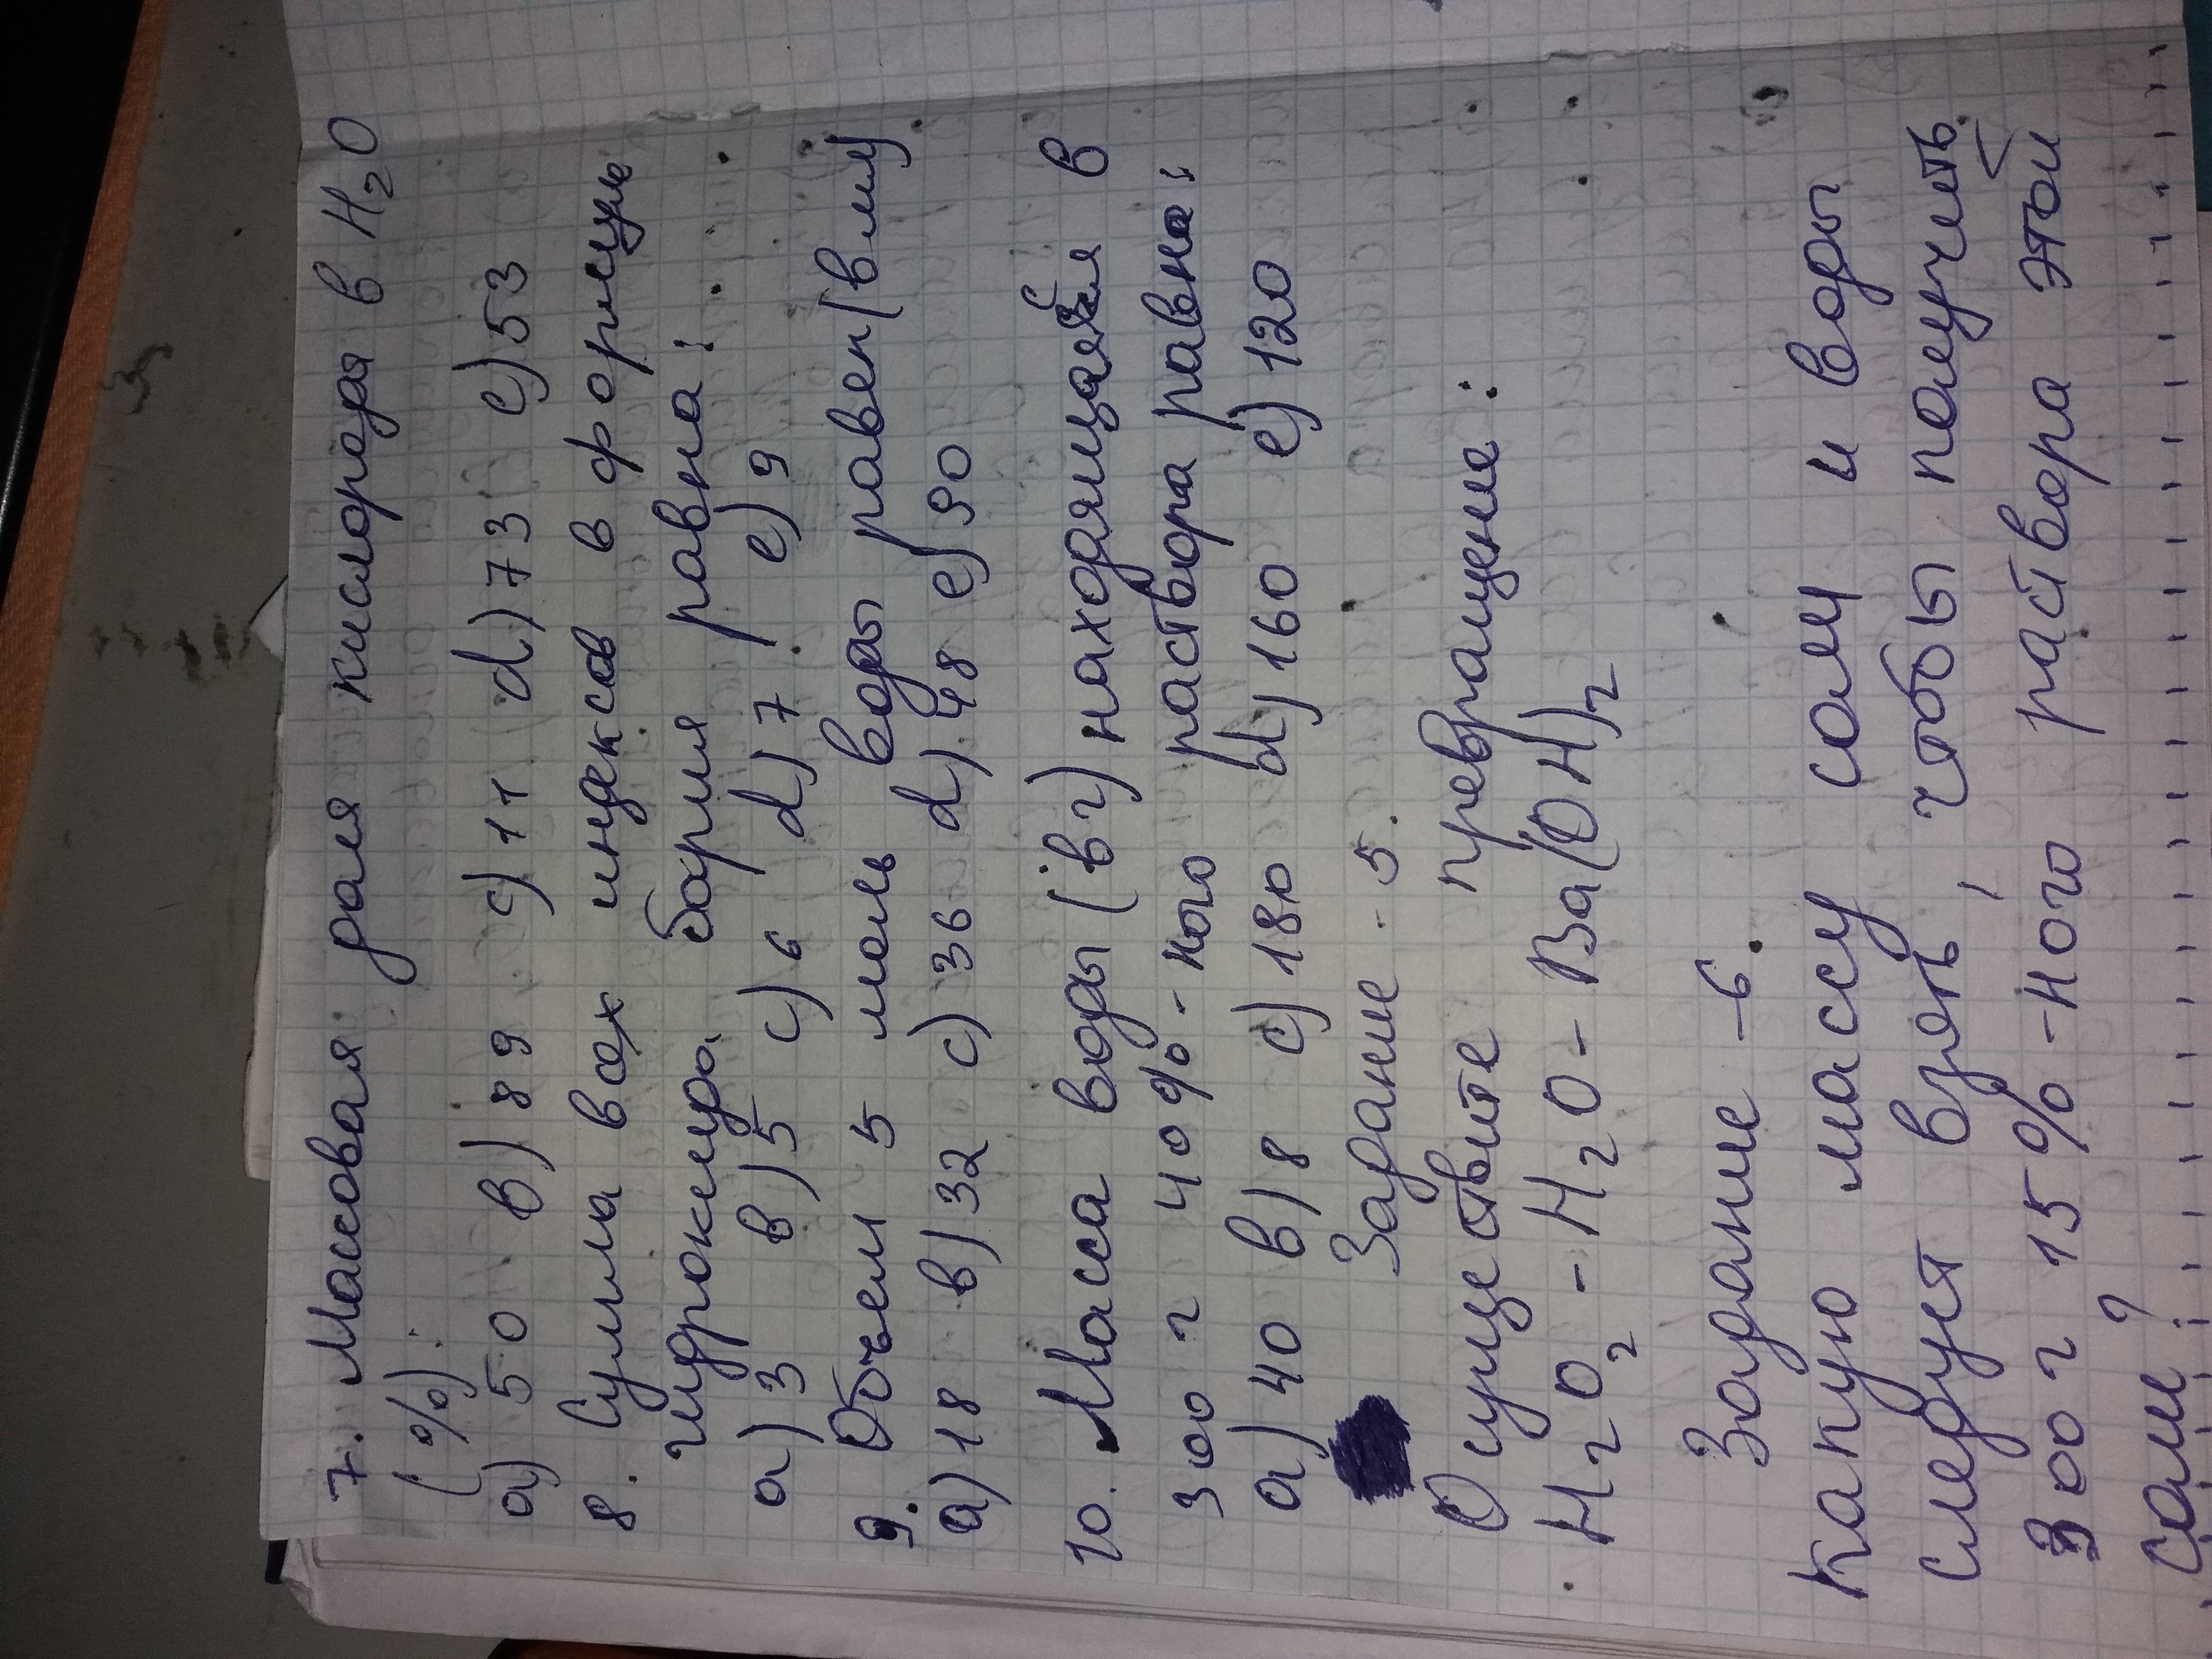 7. Массовая доля кислорода в H₂O
(%):
a) 50 в) 89 c) 11 d) 73 e) 53
8. Сумма всех индексов в формуле
гидроксида бария равна:
a) 3 в) 5 c) 6 d) 7 e) 9
9. Объем 5 моль воды равен (в мл)
a) 18 в) 32 c) 36 d) 48 e) 90
10. Масса воды (в г) находящаяся в
300 г 40%-ного раствора равна:
a) 40 в) 8 c) 180 d) 160 e) 120
Задание - 5.
Осуществите превращение:
H₂O₂ - H₂O - Ba(OH)₂
Задание - 6.
Какую массу соли и воды
следует взять, чтобы получить
300 г 15%-ного раствора этой
соли?